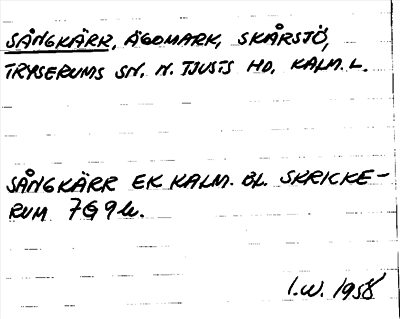 SÅNGKÄRR, ÄGOMARK, SKÅRSJÖ,
TRYSERUMS SN. N. TJUSTS HD. KALM. L.
SÅNGKÄRR EK KALM. BL. SKRICKE-
RUM 7G9h.
I.W. 1958